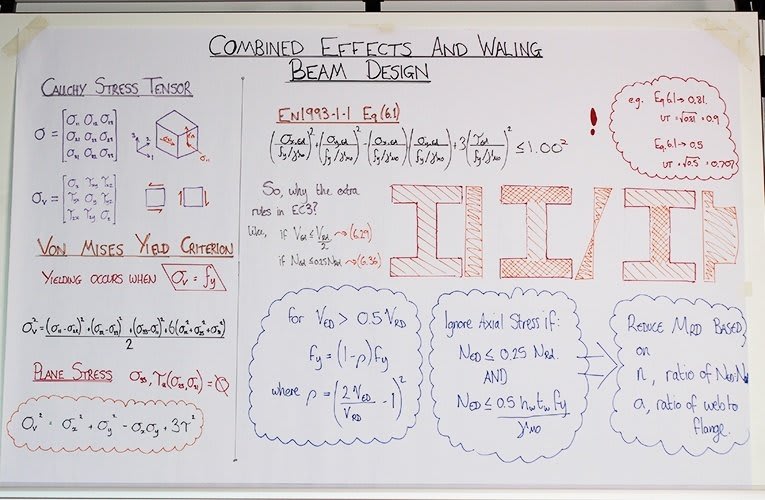 COMBINED EFFECTS AND WALING
BEAM DESIGN
CAUCHY STRESS TENSOR
σ = [σ₁₁ σ₁₂ σ₁₃
σ₂₁ σ₂₂ σ₂₃
σ₃₁ σ₃₂ σ₃₃]
σᵥ = [σx τxy τxz
τyx σy τyz
τzx τzy σz]
VON MISES YIELD CRITERION
YIELDING OCCURS WHEN σᵥ = fy
PLANE STRESS
σᵥ² = σx² + σy² - σxσy + 3τ²
EN1993-1-1 Eq (6.1)
(σx,Ed / fy/γM0)² + (σz,Ed / fy/γM0)² - (σx,Ed / fy/γM0)(σz,Ed / fy/γM0) + 3(τEd / fy/γM0)² ≤ 1.00²
!
e.g. Eq 6.1 → 0.81.
UT = √0.81 = 0.9
Eq. 6.1 → 0.5
UT = √0.5 = 0.707
So, why the extra
rules in EC3?
if VEd ≤ VRd/2 → (6.29)
if NEd ≤ 0.25 NRd → (6.36)
for VED > 0.5 VRD
Fy = (1-ρ) fy
where ρ = (2VED/VRD - 1)²
Ignore Axial Stress if:
NED ≤ 0.25 NRd.
AND
NED ≤ 0.5 hw tw fy / γM0
REDUCE MRD BASED
on
n, ratio of NED-NRd
a, ratio of web to
flange.